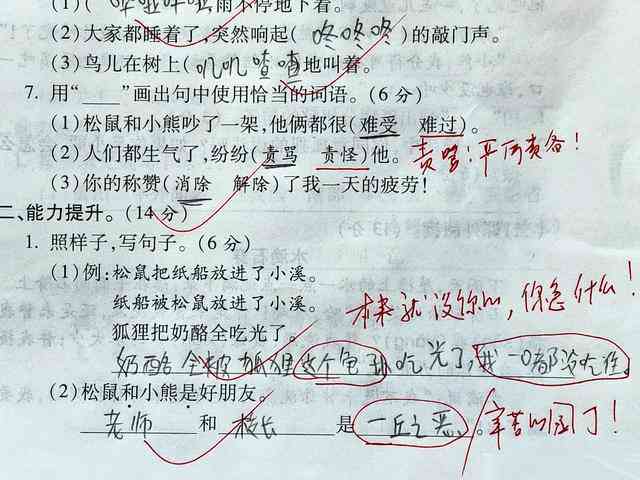 (1)( 哗啦哗啦雨不停地下着。
(2)大家都睡着了,突然响起( 咚咚咚 )的敲门声。
(3)鸟儿在树上( 叽叽喳喳地叫着。
7. 用“____”画出句中使用恰当的词语。(6分)
(1)松鼠和小熊吵了一架,他俩都很(难受 难过)。
(2)人们都生气了,纷纷(责骂 责怪)他。 责骂:严厉责备!
(3)你的称赞(消除 解除)了我一天的疲劳!
二、能力提升。(14分)
1. 照样子,写句子。(6分)
(1)例:松鼠把纸船放进了小溪。
纸船被松鼠放进了小溪。
本来就没你的,你急什么!
狐狸把奶酪全吃光了。
奶酪全被狐狸这个龟孙吃光了,我一口都没吃谁。
(2)松鼠和小熊是好朋友。
老师 和 校长 是 一丘之恶 。 辛苦的园丁!